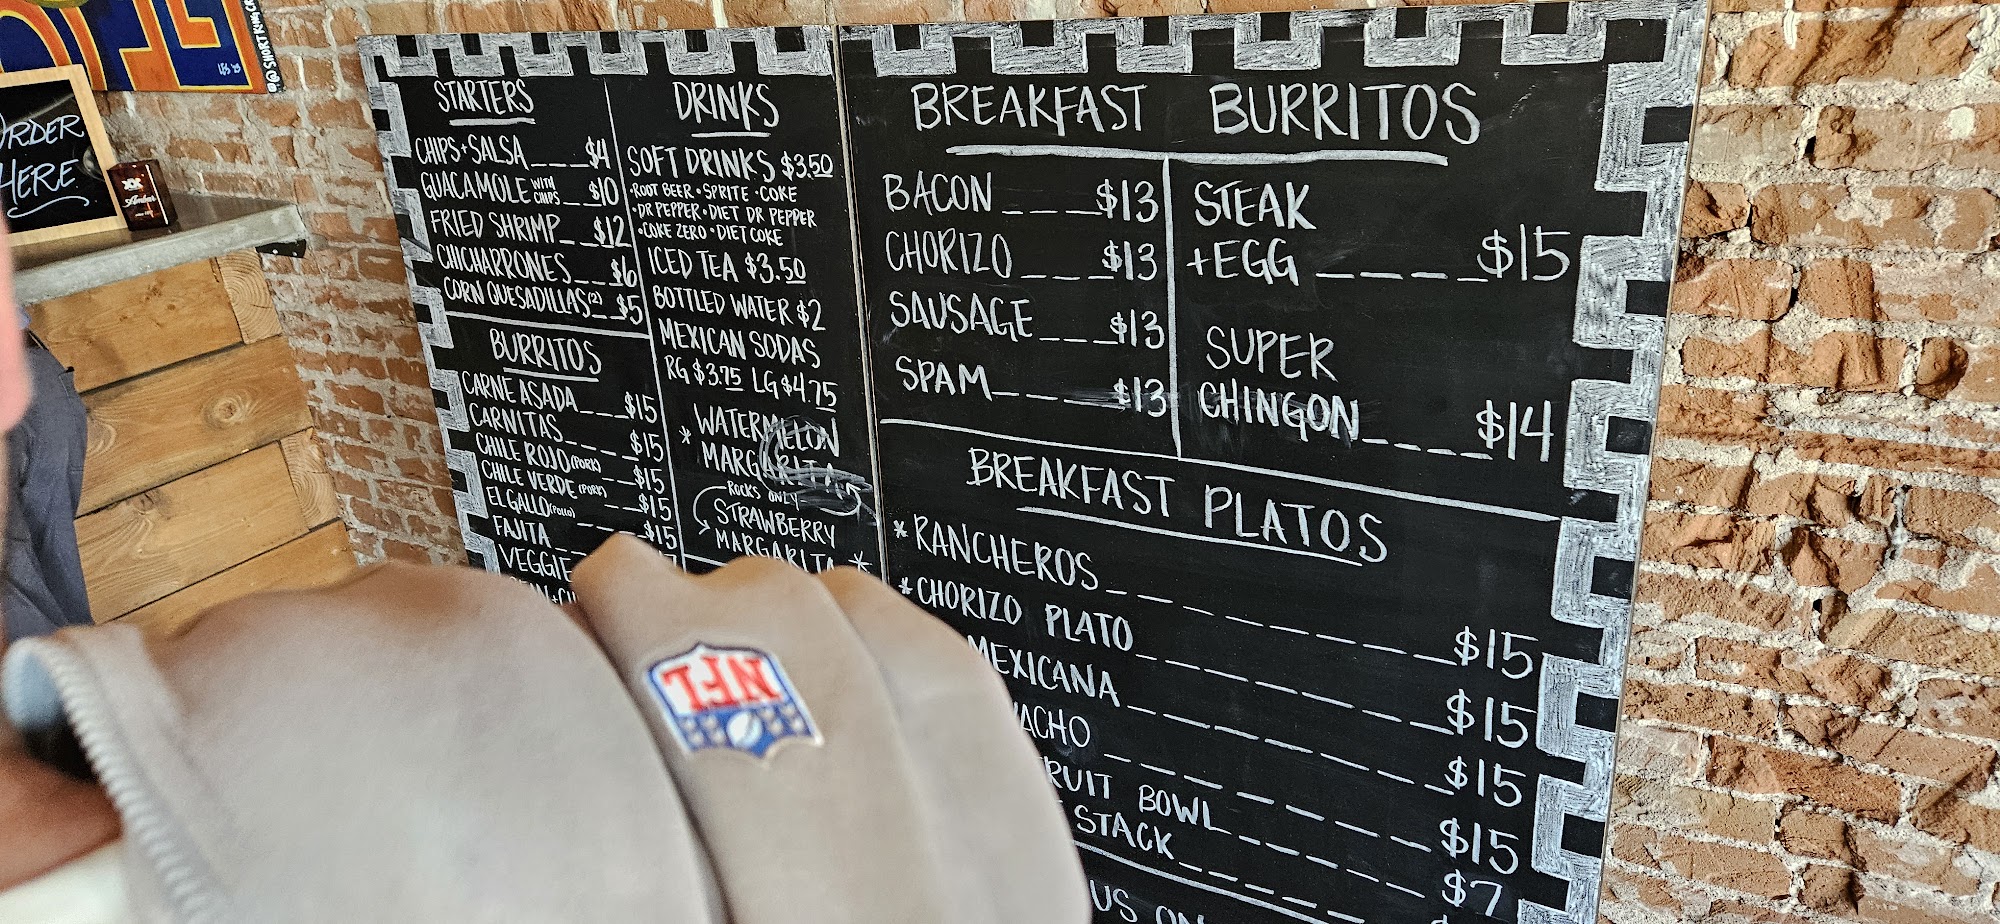 ORDER
HERE
@SHORTKING
XX
Ambar
STARTERS
CHIPS+SALSA___$4
GUACAMOLE WITH CHIPS__$10
FRIED SHRIMP__$12
CHICHARRONES__$6
CORN QUESADILLAS(2)_$5
BURRITOS
CARNE ASADA___$15
CARNITAS___$15
CHILE ROJO (PORK)__$15
CHILE VERDE (PORK)__$15
EL GALLO (POLLO)____$15
FAJITA
VEGGIE
DRINKS
SOFT DRINKS $3.50
•ROOT BEER •SPRITE •COKE
•DR PEPPER •DIET DR PEPPER
•COKE ZERO •DIET COKE
ICED TEA $3.50
BOTTLED WATER $2
MEXICAN SODAS
RG $3.75 LG $4.75
WATERMELON
* MARGARITA
ROCKS ONLY
STRAWBERRY
MARGARITA *
BREAKFAST BURRITOS
BACON____$13
CHORIZO___$13
SAUSAGE___$13
SPAM____$13
STEAK
+EGG_____$15
SUPER
CHINGON____$14
BREAKFAST PLATOS
*RANCHEROS__________$15
*CHORIZO PLATO________$15
MEXICANA________$15
FRUIT BOWL
STACK
$15
$7
US ON
NFL